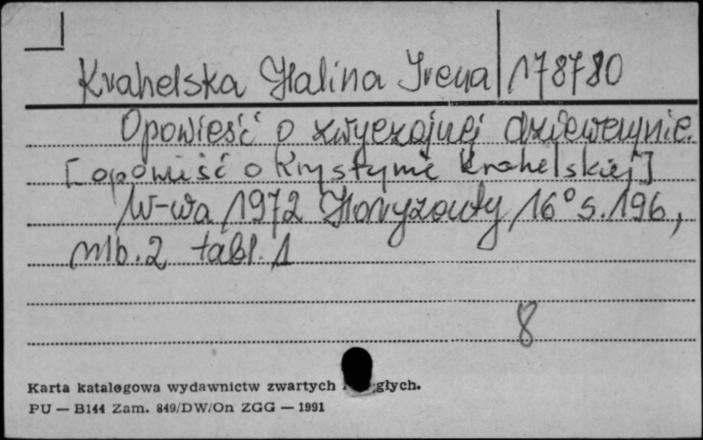 Krahelska Halina Irena 178780
Opowieść o zwyczajnej dziewczynie.
[opowieść o Krystynie Krahelskiej]
W-wa 1972 Horyzonty 16° s. 196,
nlb. 2 tabl. 1
8
Karta katalogowa wydawnictw zwartych głych.
PU — B144 Zam. 849/DW/On ZGG — 1991